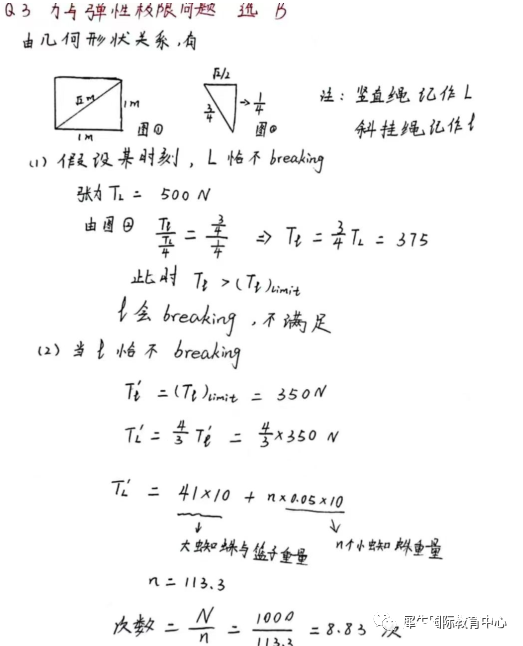 Q3 力与弹性极限问题 选 B
由几何形状关系,有
√2m
1m
1m
图①
√2/2
3/4
→ 1/4
图②
注: 竖直绳记作 L
斜挂绳记作 ℓ
(1) 假设某时刻, L 恰不 breaking
张力 T_L = 500 N
由图② T_ℓ / (T_L/4) = (3/4) / (1/4) ⇒ T_ℓ = 3/4 T_L = 375
此时 T_ℓ > (T_ℓ)limit
ℓ会 breaking, 不满足
(2) 当 ℓ 恰不 breaking
T_ℓ' = (T_ℓ)limit = 350 N
T_L' = 4/3 T_ℓ' = 4/3 × 350 N
T_L' = 41×10 + n×0.05×10
大蜘蛛与篮子重量
n个小蜘蛛重量
n = 113.3
次数 = N/n = 1000/113.3 = 8.83 次
犀牛国际教育中心